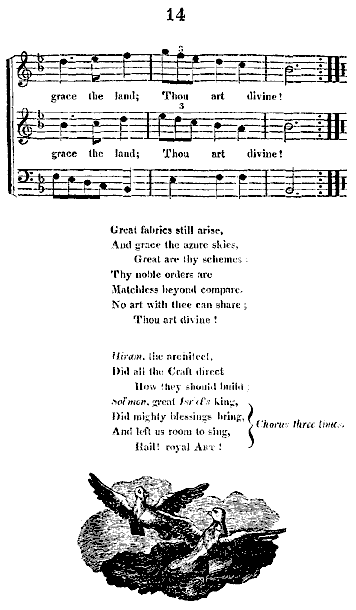 14
3
grace the land; Thou art divine!
3
grace the land; Thou art divine!
Great fabrics still arise,
And grace the azure skies,
Great are thy schemes:
Thy noble orders are
Matchless beyond compare,
No art with thee can share;
Thou art divine!
Hiram, the architect,
Did all the Craft direct
How they should build;
Sol'mon, great Isr'el's king,
Did mighty blessings bring,
And left us room to sing,
Hail! royal ART!
Chorus three times.